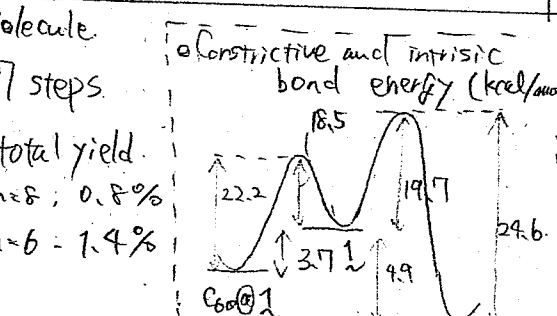 olecule
7 steps
total yield.
n=8 ; 0.8%
n=6 = 1.4%
Constrictive and intrisic
bond energy (kcal/
18.5
22.2
19.7
24.6
3.7 1
4.9
C60@1